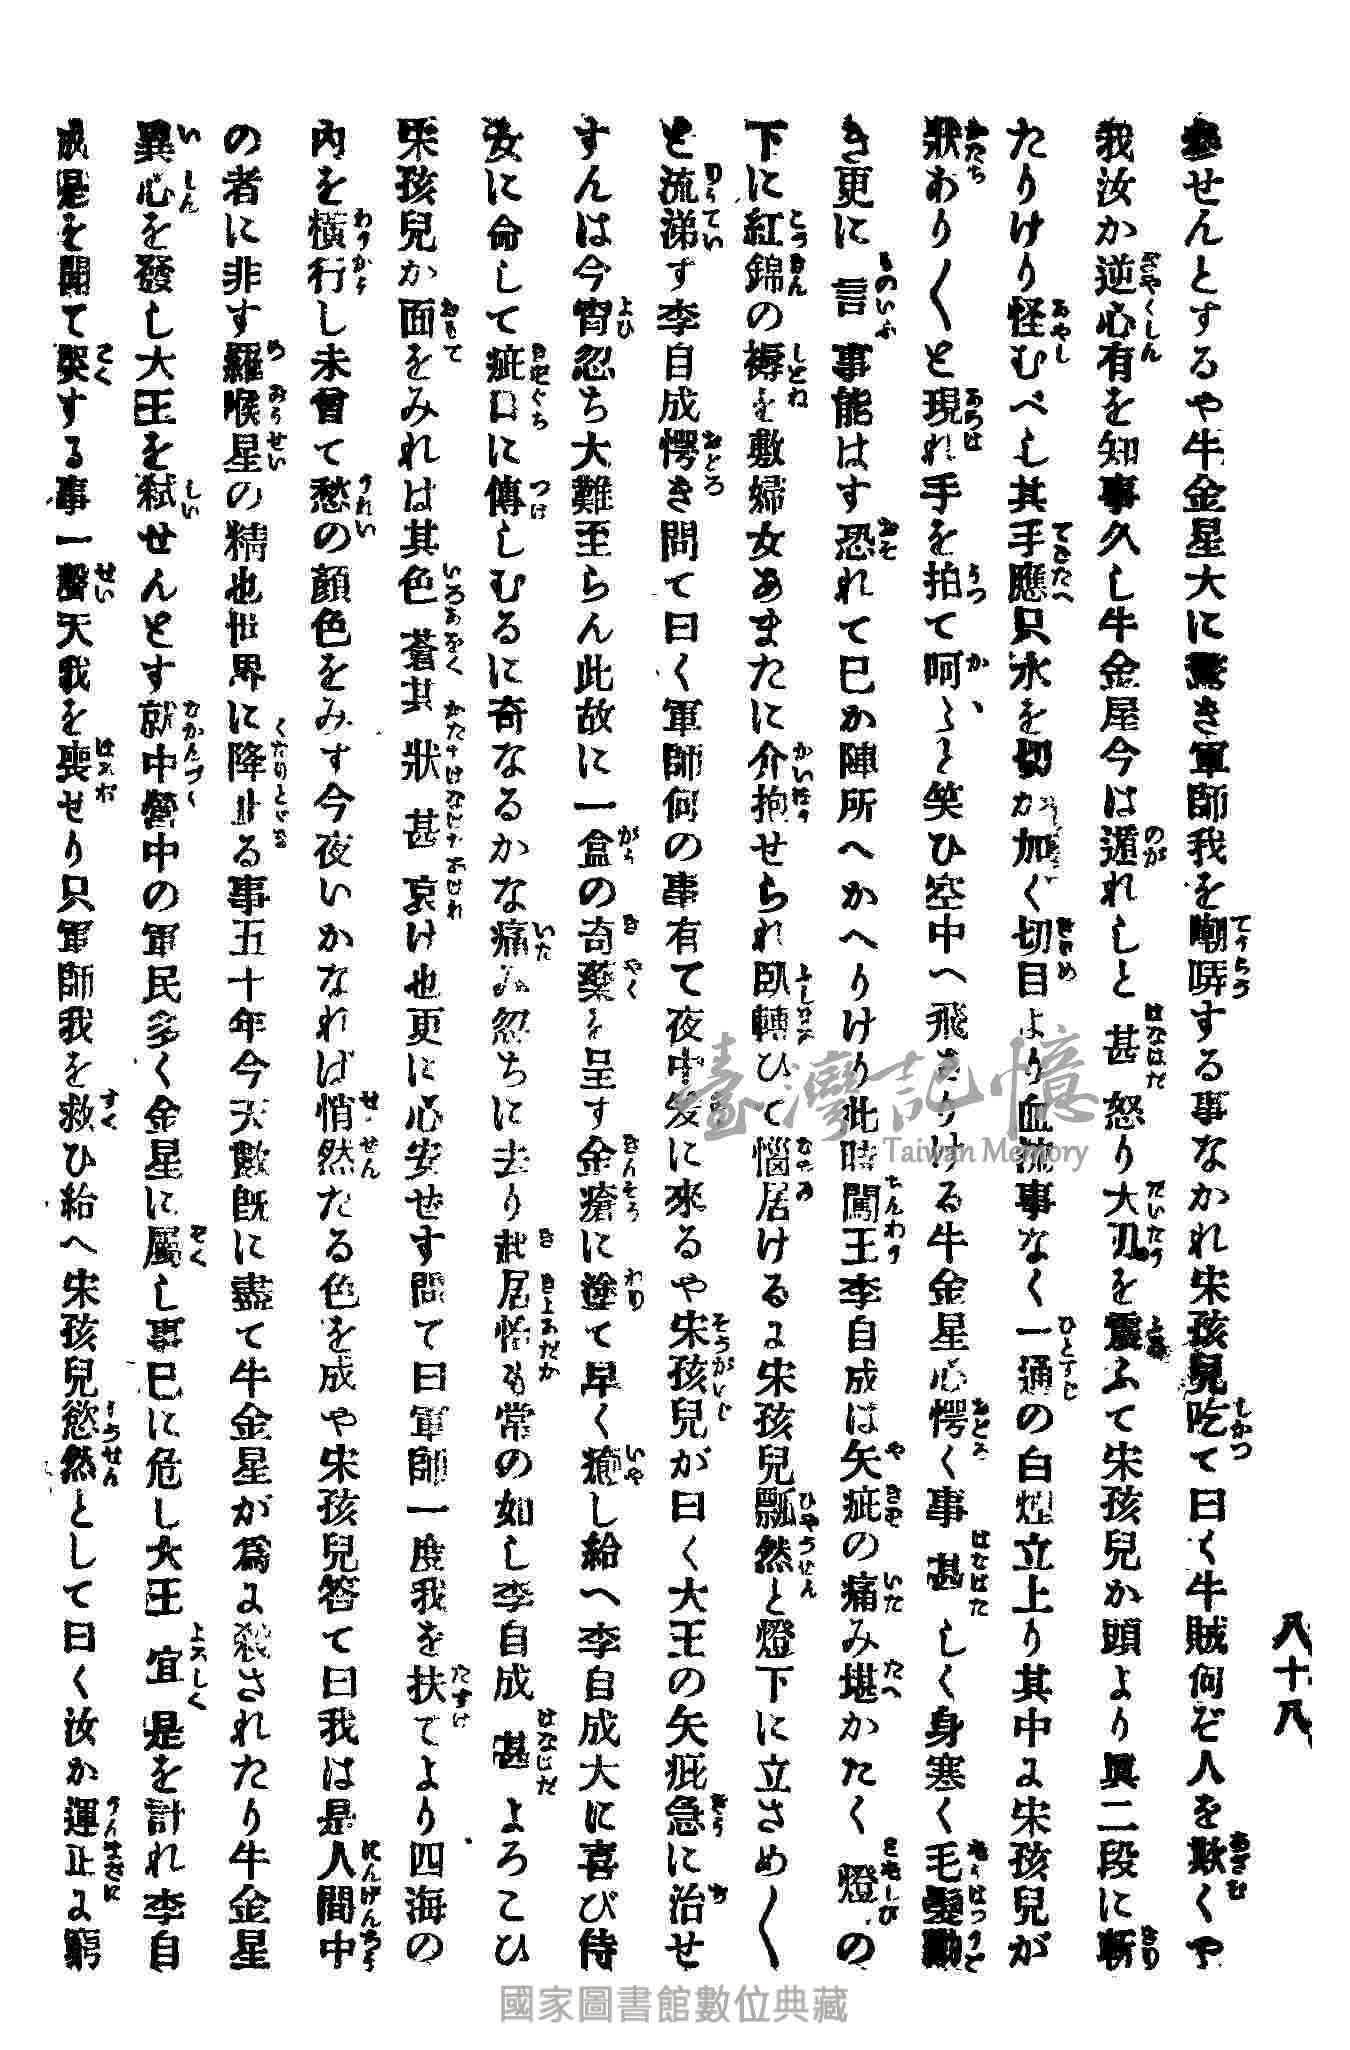 八十八
參せんとするや牛金星大に驚き軍師我を嘲哢する事なかれ宋孩兒吃て曰く牛賊何ぞ人を欺くや
我汝か逆心有を知事久し牛金星今は遁れしと甚怒り大刀を震ふて宋孩兒か頭より眞二段に斬
たりけり怪むべし其手應只水を切か如く切目より血流事なく一通の白煙立上り其中に宋孩兒が
狀あり〱と現れ手を拍て呵〻と笑ひ空中へ飛さりける牛金星心愕く事甚しく身寒く毛髮動
き更に言事能はす恐れて已か陣所へかへりけり此時闖王李自成は矢疵の痛み堪かたく燈の
下に紅錦の褥を敷婦女あまたに介抱せられ臥轉ひて惱居けるに宋孩兒飄然と燈下に立さめ〱
と流涕す李自成愕き問て曰く軍師何の事有て夜中爰に來るや宋孩兒が曰く大王の矢疵急に治せ
すんは今宵忽ち大難至らん此故に一盒の奇藥を呈す金瘡に塗て早く癒し給へ李自成大に喜び侍
女に命して疵口に傳しむるに奇なるかな痛み忽ちに去り起居恰も常の如し李自成甚よろこひ
宋孩兒か面をみれは其色蒼其狀甚哀け也更に心安せす問て曰軍師一度我を扶てより四海の
內を橫行し未曾て愁の顏色をみす今夜いかなれば悄然たる色を成や宋孩兒答て曰我は是人間中
の者に非す羅睺星の精也世界に降止る事五十年今天數既に盡て牛金星が爲に殺されたり牛金星
異心を發し大王を弑せんとす就中營中の軍民多く金星に屬し事已に危し大王宜是を計れ李自
成是を聞て哭する事一聲天我を喪せり只軍師我を救ひ給へ宋孩兒愁然として曰く汝か運正に窮